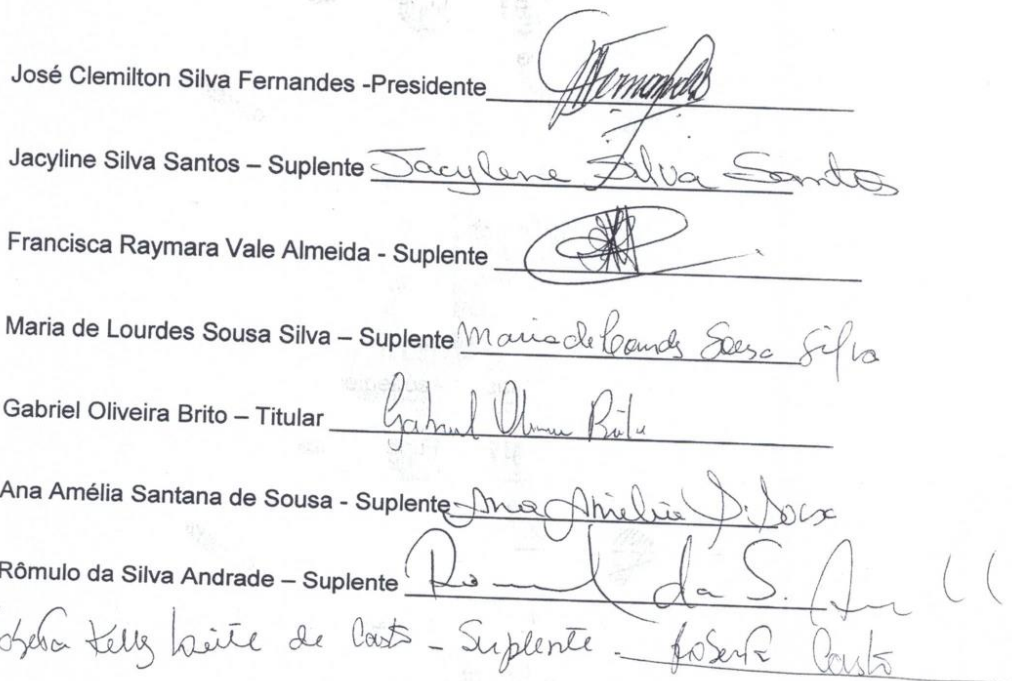 José Clemilton Silva Fernandes -Presidente Fernandes
Jacyline Silva Santos – Suplente Jacylene Silva Santos
Francisca Raymara Vale Almeida - Suplente
Maria de Lourdes Sousa Silva – Suplente Maria de Lourdes Sousa Silva
Gabriel Oliveira Brito – Titular Gabriel Oliveira Brito
Ana Amélia Santana de Sousa - Suplente Ana Amélia S. Sousa
Rômulo da Silva Andrade – Suplente da S.
Kelly Leite de Castro - Suplente - Roberta Castro